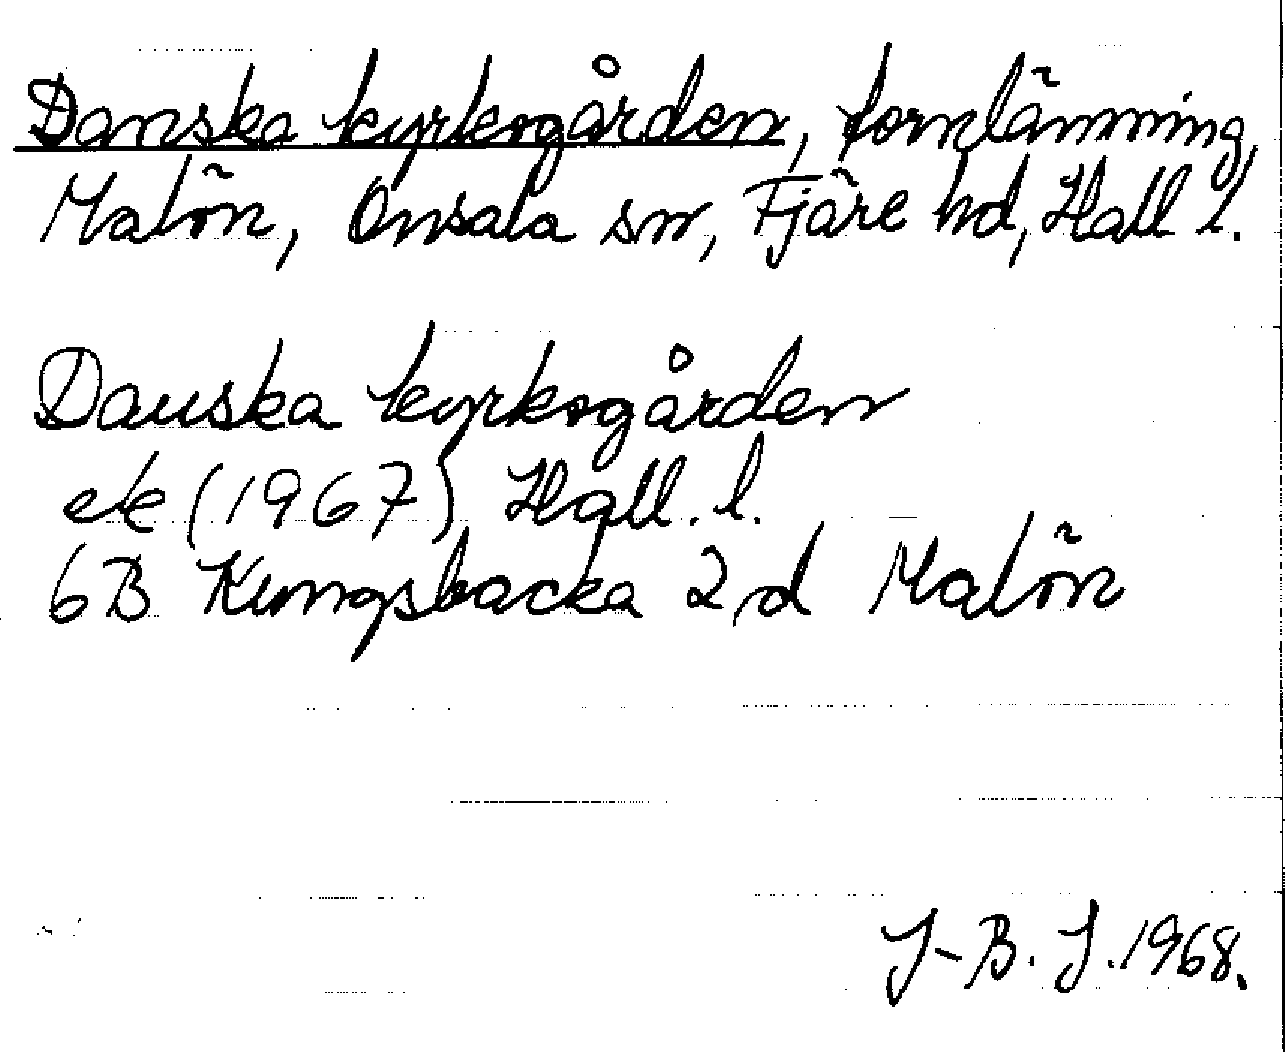 Danska kyrkogården, fornlämning,
Malön, Onsala sn, Fjäre hd, Hall l.
Danska kyrkogården
ek (1967) Hall. l.
6B Kungsbacka 2 d Malön
J-B. J. 1968.